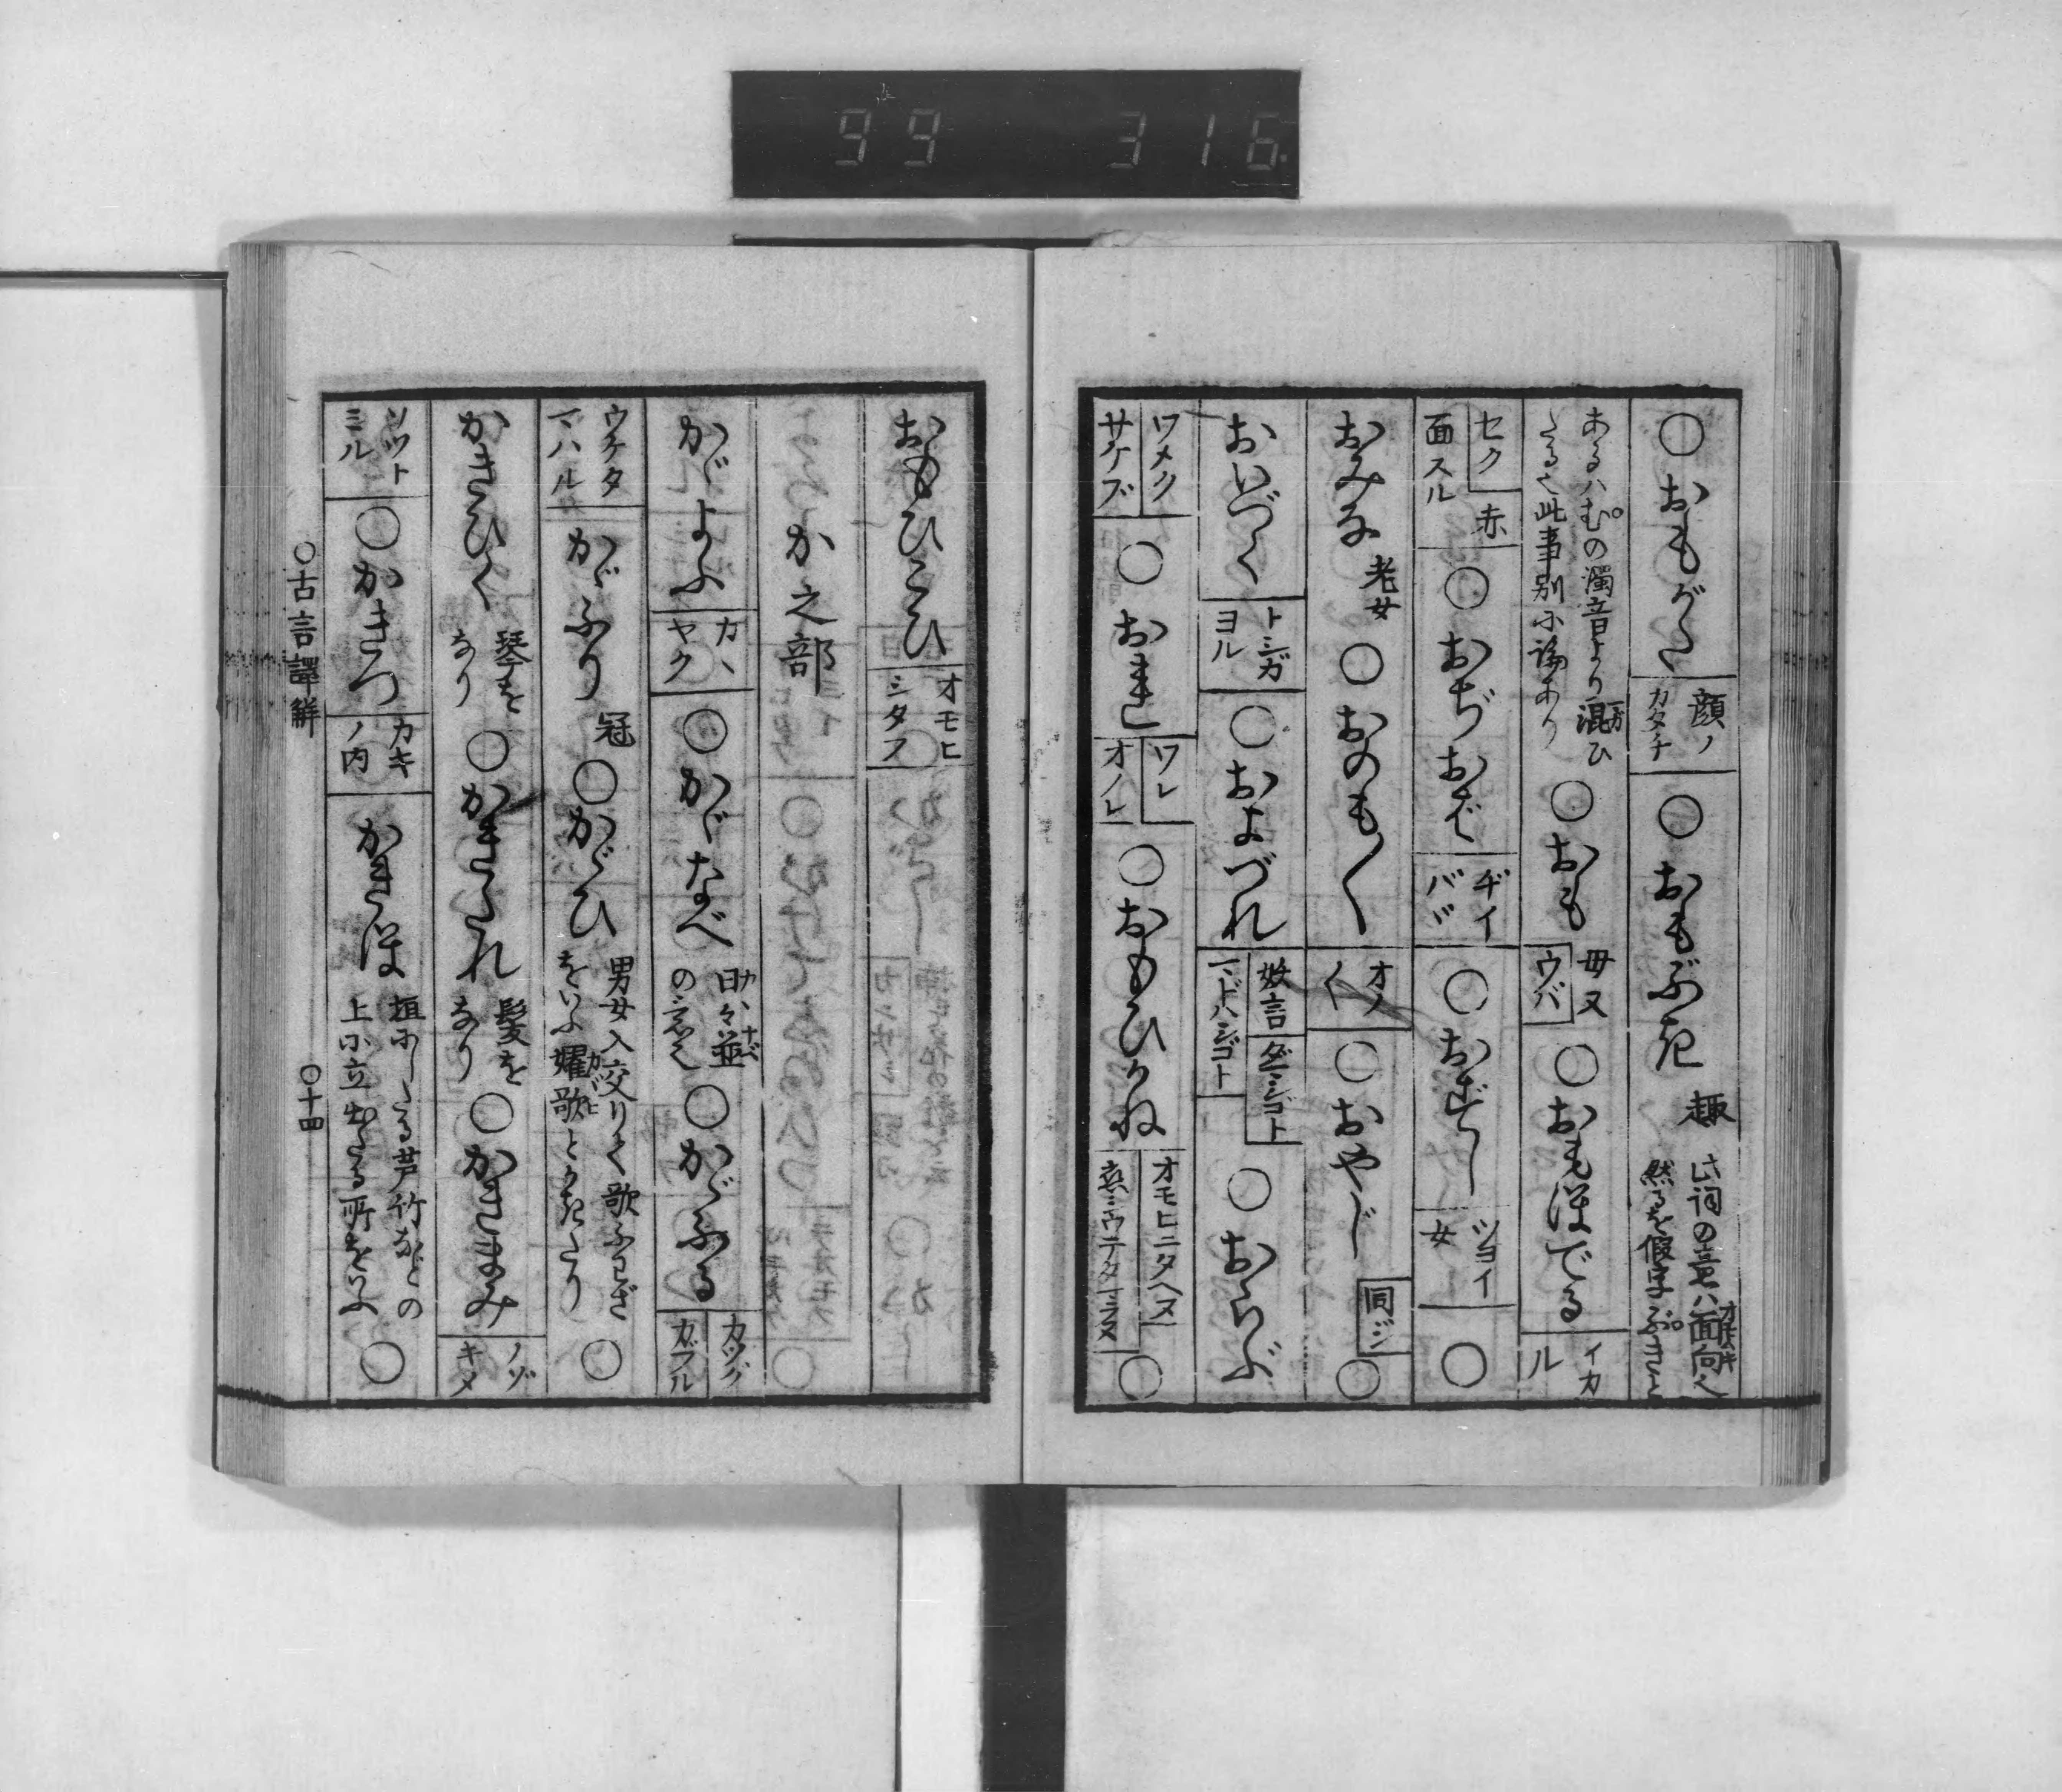 99 316
○おもがた 顔ノカタチ ○おもぶき 趣 此詞の意ハ面向也然るを假字ぶきと
あるハむの濁音より混ひたる也此事別に論あり ○おも 母又ウバ ○おもほでる イカル
セク赤面スル ○おぢおば ヂイバヾ ○おずし ツヨイ女 ○
おみな 老女 ○おのもく オノく ○おやじ 同ジ ○
おいづく トシガヨル ○およづれ 妖言 マドハシゴト ○おらぶ
ワメクサケブ ○おれ ワレオノレ ○おもひかね オモヒニタヘヌ ○
おもひこひ オモヒシタフ
か之部
かゞよふ カヽヤク ○かゞなべ 日々並の意也 ○かゞふる カツグカブル
ウケタマハル かゞふり 冠 ○かゞひ 男女入交りて歌ふわざをいふ嬥歌とかきたり ○
かきひく 琴をなり ○かきたれ 髪をなり ○かきまみ ノゾキメ
ソツトミル ○かきつ カキノ内 かきほ 垣にしたる芦竹などの上に立出たる所をいふ ○
○古言譯解 ○十四